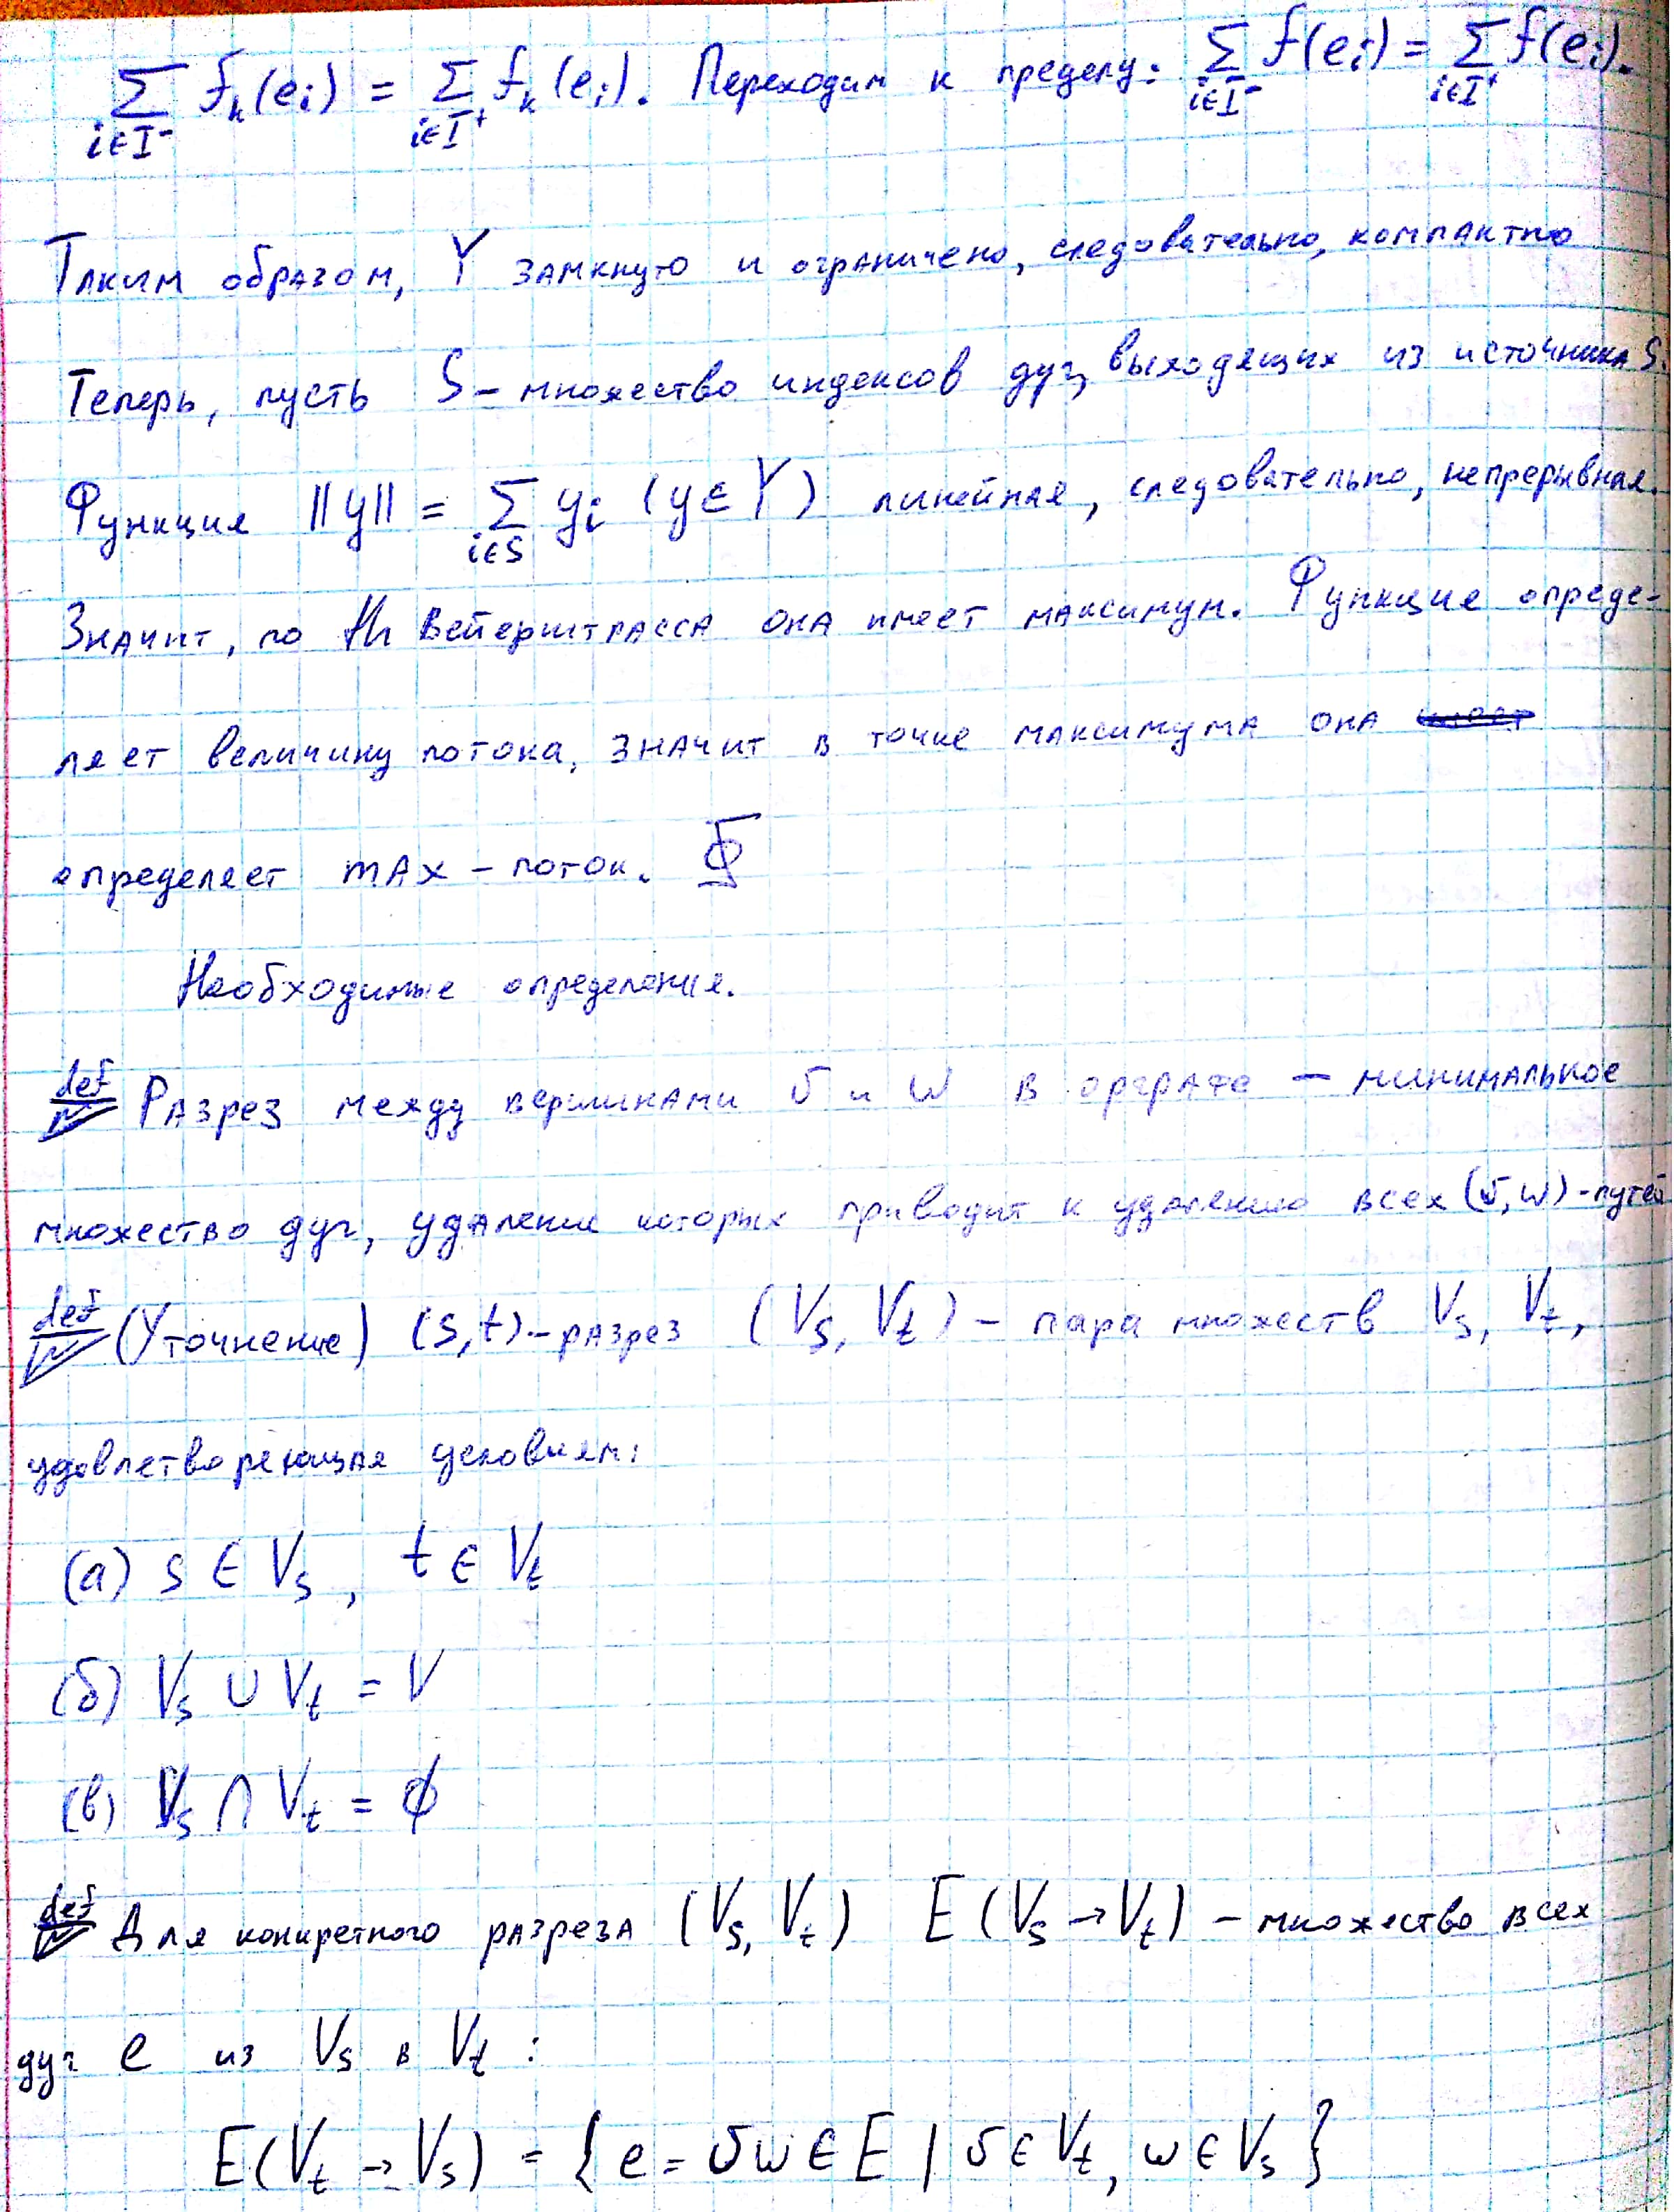 ∑_{i∈I⁻} f_k(e_i) = ∑_{i∈I⁺} f_k(e_i). Переходим к пределу: ∑_{i∈I⁻} f(e_i) = ∑_{i∈I⁺} f(e_i).
Таким образом, Y замкнуто и ограничено, следовательно, компактно
Теперь, пусть S – множество индексов дуг, выходящих из источника S.
Функция ||y|| = ∑_{i∈S} y_i (y∈Y) линейная, следовательно, непрерывная.
Значит, по th Вейерштрасса она имеет максимум. Функция опреде-
ляет величину потока, значит в точке максимума она
определяет max – поток.
Необходимые определения.
def Разрез между вершинами v и w в орграфе – минимальное
множество дуг, удаление которых приводит к удалению всех (v, w) - путей
def (Уточнение) (s,t) – разрез (V_s, V_t) – пара множеств V_s, V_t,
удовлетворяющая условиям:
(а) s ∈ V_s, t ∈ V_t
(б) V_s ∪ V_t = V
(в) V_s ∩ V_t = ϕ
def Для конкретного разреза (V_s, V_t) E (V_s → V_t) – множество всех
дуг e из V_s в V_t :
E(V_t → V_s) = { e = vw ∈ E | v ∈ V_t, w ∈ V_s }